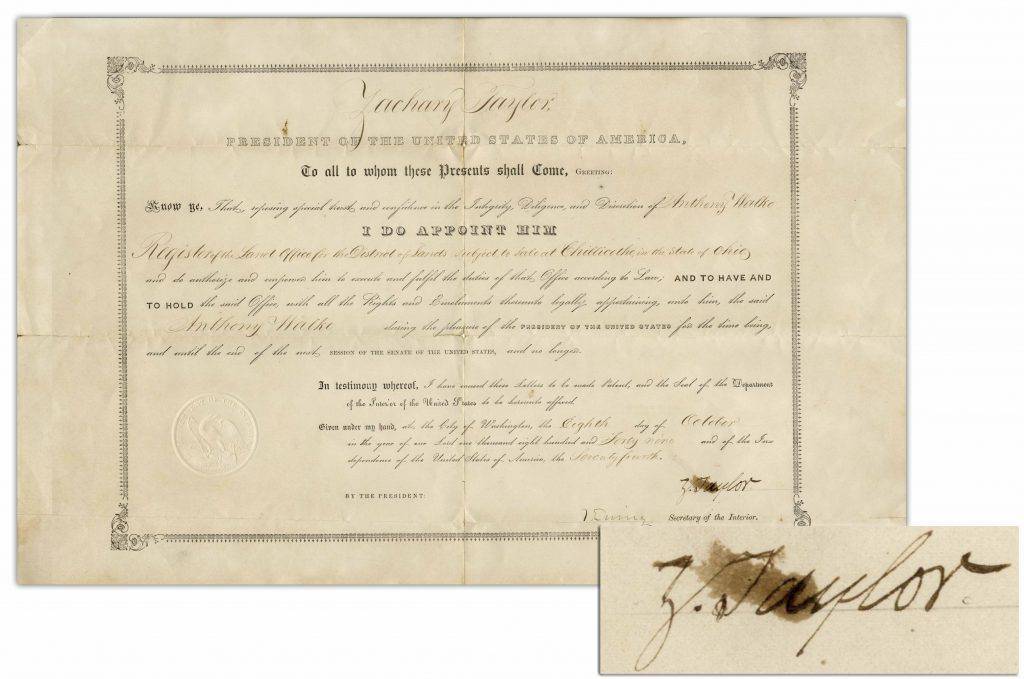 Zachary Taylor,
PRESIDENT OF THE UNITED STATES OF AMERICA,
To all to whom these Presents shall Come, GREETING:
Know ye, That, reposing special trust and confidence in the Integrity, Diligence, and Discretion of Anthony Walke
I DO APPOINT HIM
Register of the Land Office for the District of Lands subject to sale at Chillicothe, in the State of Ohio,
and do authorize and empower him to execute and fulfil the duties of that Office according to Law; AND TO HAVE AND
TO HOLD the said Office, with all the Rights and Emoluments thereunto legally appertaining, unto him, the said
Anthony Walke during the pleasure of the PRESIDENT OF THE UNITED STATES for the time being,
and until the end of the next SESSION OF THE SENATE OF THE UNITED STATES, and no longer.
In testimony whereof, I have caused these Letters to be made Patent, and the Seal of the Department
of the Interior of the United States to be hereunto affixed.
Given under my hand, at the City of Washington, the Eighth day of October
in the year of our Lord one thousand eight hundred and Forty nine and of the In-
dependence of the United States of America, the Seventy fourth.
Z. Taylor.
BY THE PRESIDENT:
T. Ewing Secretary of the Interior.
Z. Taylor.